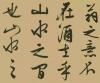 翁之意不
在酒在乎
山水之间
也山水之